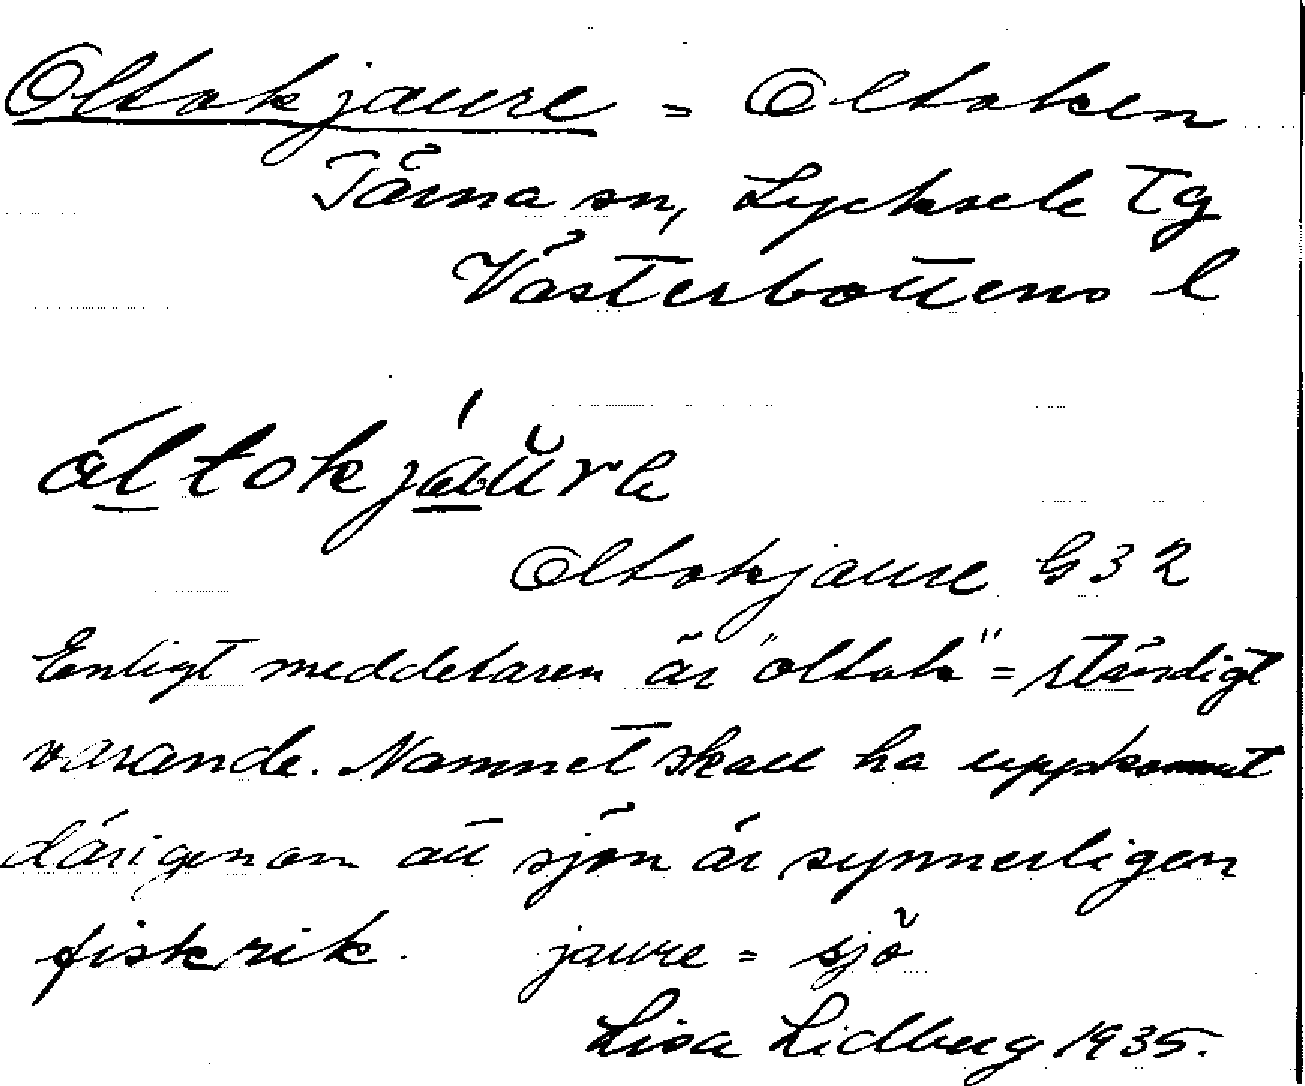 Oltokjaure = Oltoken
Tärna sn, Lycksele Tg
Västerbottens l
áltokjaŭre
Oltokjaure G 32
Enligt meddelaren är "oltok" = ständigt
varande. Namnet skall ha uppkommit
därigenom att sjön är synnerligen
fiskrik. jaure = sjö
Lisa Lidberg 1935.